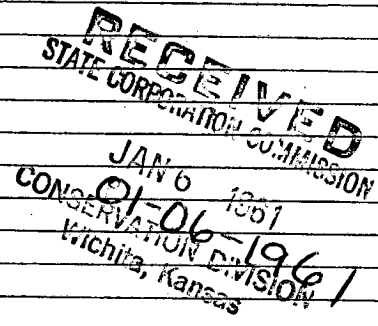 RECEIVED
STATE CORPORATION COMMISSION
JAN 6 1961
01-06-1961
CONSERVATION DIVISION
Wichita, Kansas